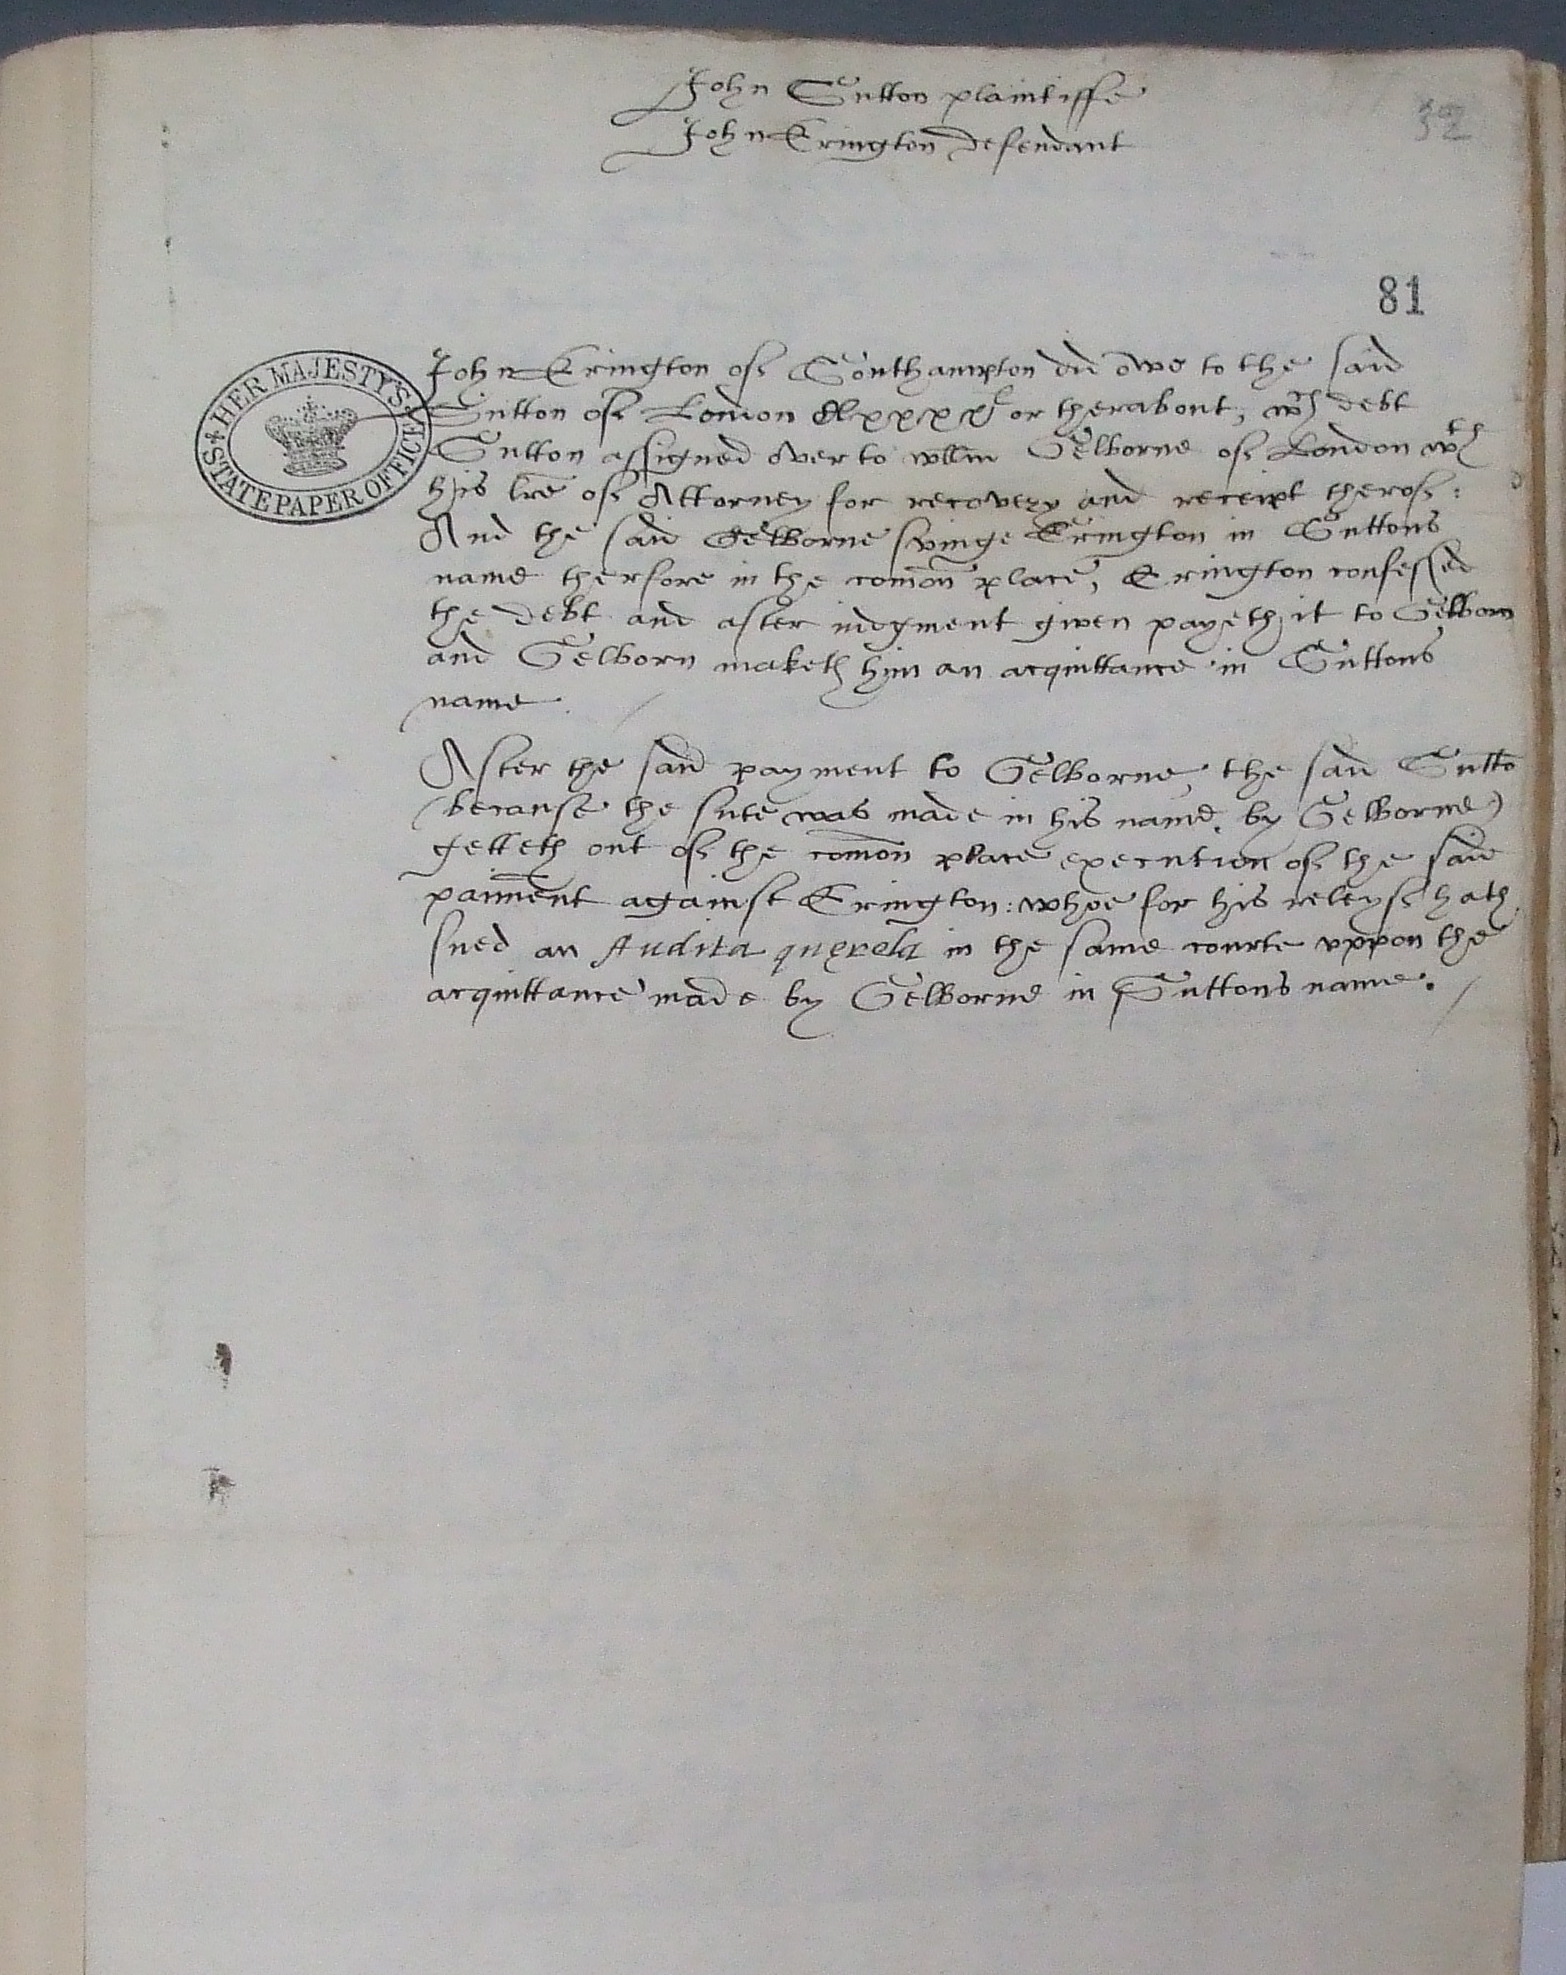 John Sutton plaintiffe
32
John Erington defendant
81
HER MAJESTY'S
STATE PAPER OFFICE
John Erington of Southampton did owe to the said
Sutton of London Clxxxxli or therabout, wch debt
Sutton assigned over to willm Gelborne of London wth
his lre of Attorney for recovery and receipt therof:
And the said Gelborne suinge Erington in Suttons
name therfore in the comon place, Erington confessed
the debt and after iudgment given payeth it to Gelborn
and Gelborn maketh him an acquittance in Suttons
name.
After the said payment to Gelborne, the said Sutto
(because the sute was made in his name by Gelborne)
getteth out of the comon place execution of the said
paiment against Erington: whoe for his releyse hath
sued an Audita querela in the same courte uppon the
acquittance made by Gelborne in Suttons name.